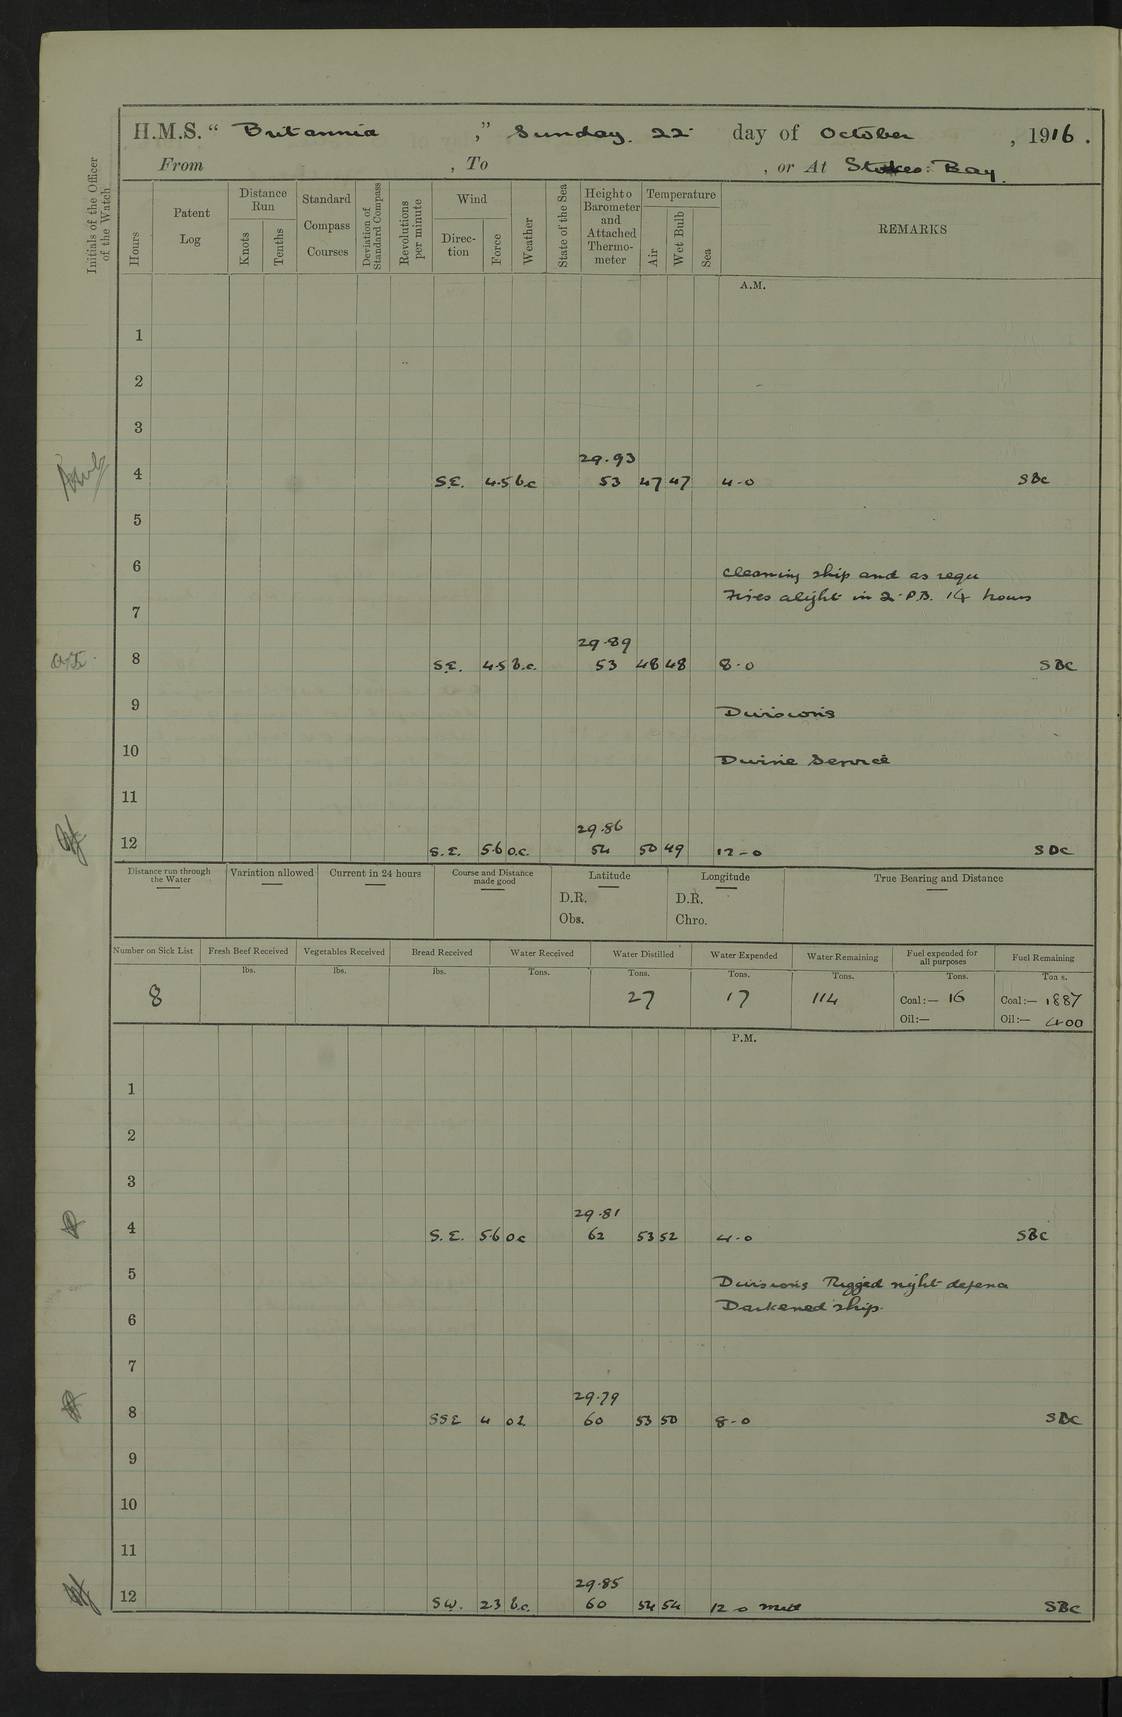 H.M.S. “ Britannia ,” Sunday. 22 day of October , 1916 .
From , To , or At Stokes: Bay.
Initials of the Officer of the Watch
Hours
Patent Log
Distance Run
Knots
Tenths
Standard Compass Courses
Deviation of Standard Compass
Revolutions per minute
Wind
Direc-tion
Force
Weather
State of the Sea
Height o Barometer and Attached Thermo-meter
Temperature
Air
Wet Bulb
Sea
REMARKS
A.M.
1
2
3
29.93
4 S.E. 4.5 b.c 53 47 47 4-0 SBC
5
6
cleaning ship and as requ
Fires alight in 2 P.B. 14 hours
7
29.89
8 S.E. 4.5 b.c. 53 48 48 8-0 SBC
9 Divisions
10 Divine Service
11
29.86
12 S.E. 5.6 o.c. 54 50 49 12-0 SBC
Distance run through the Water
Variation allowed
Current in 24 hours
Course and Distance made good
Latitude
D.R.
Obs.
Longitude
D.R.
Chro.
True Bearing and Distance
Number on Sick List Fresh Beef Received Vegetables Received Bread Received Water Received Water Distilled Water Expended Water Remaining Fuel expended for all purposes Fuel Remaining
lbs. lbs. lbs. Tons. Tons. Tons. Tons. Tons. Ton s.
8 27 17 114 Coal:— 16 Coal:— 1887
Oil:— Oil:— 400
P.M.
1
2
3
29.81
4 S.E. 5.6 oc 62 53 52 4-0 SBC
5 Divisions Rigged night defena
Darkened ship.
6
7
29.79
8 SSE 4 02 60 53 50 8-0 SBC
9
10
11
29.85
12 SW. 2.3 b.c. 60 54 54 12-0 SBC